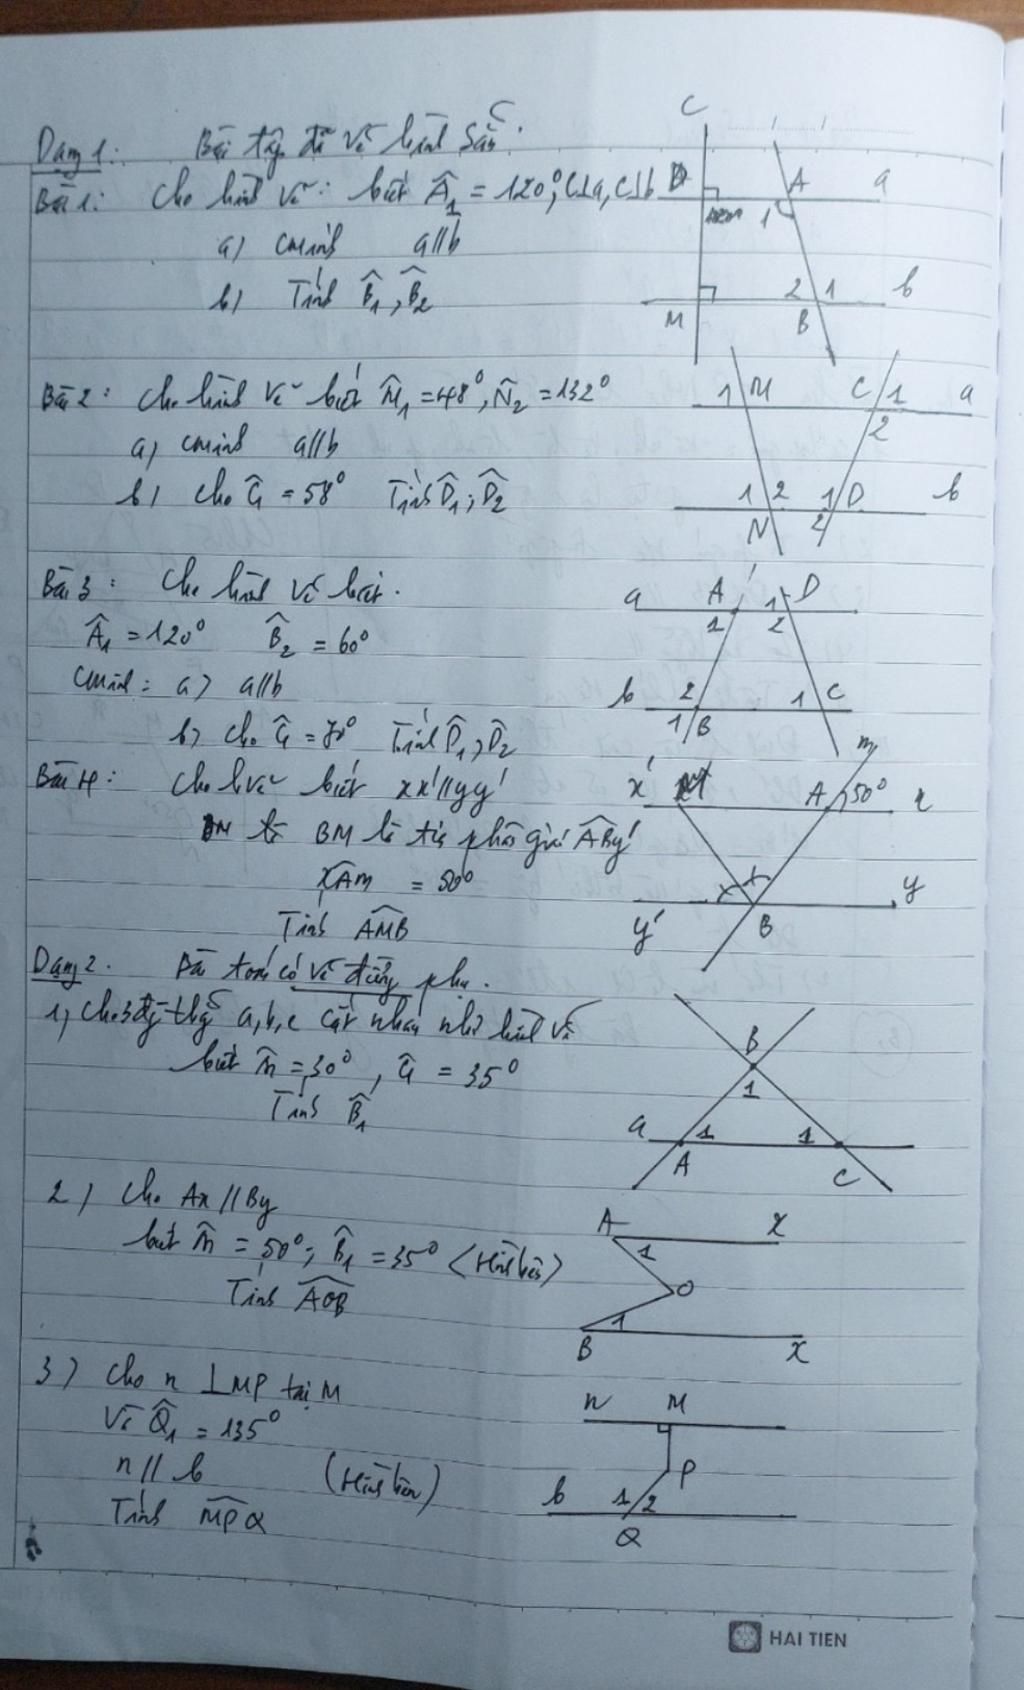 Dạng 1: Bài tập đã vẽ hình sẵn.
Bài 1: Cho hình vẽ: biết Â₁ = 120°, c⊥a, c⊥b
a) cminh a//b
b) Tính B̂₁, B̂₂
C
A a
1
2 1 b
M B
Bài 2: Cho hình vẽ biết M̂₁ = 48°, N̂₂ = 132°
a) cminh a//b
b) cho Ĉ₁ = 58° Tính D̂₁; D̂₂
1 M C 1 a
2
1 2 1 D b
N 2
Bài 3: Cho hình vẽ biết.
Â₁ = 120° B̂₂ = 60°
Cminh: a) a//b
b) cho Ĉ₁ = Tính D̂₁, D̂₂
a A 1 D
1 2
b 2 1 C
1 B
Bài 4: Cho hvẽ biết xx'//yy'
BM là tia phân giác ABy'
xAm = 50°
Tính AMB
m
x' M A 50° x
y' B y
Dạng 2. Bài toán có vẽ đường phụ.
1, Cho 3 đg thg a, b, c cắt nhau như hình vẽ
biết Â₁ = 30°, Ĉ₁ = 35°
Tính B̂₁
B
1
a 1 1
A C
2) Cho Ax // By
biết Â₁ = 50°; B̂₁ = 35° (Hình bên)
Tính AOB
A x
1
O
1
B x
3) Cho n ⊥ MP tại M
Vẽ Q̂₁ = 135°
n // b (Hình bên)
Tính MPQ
n M
P
b 1 2
Q
HAI TIEN